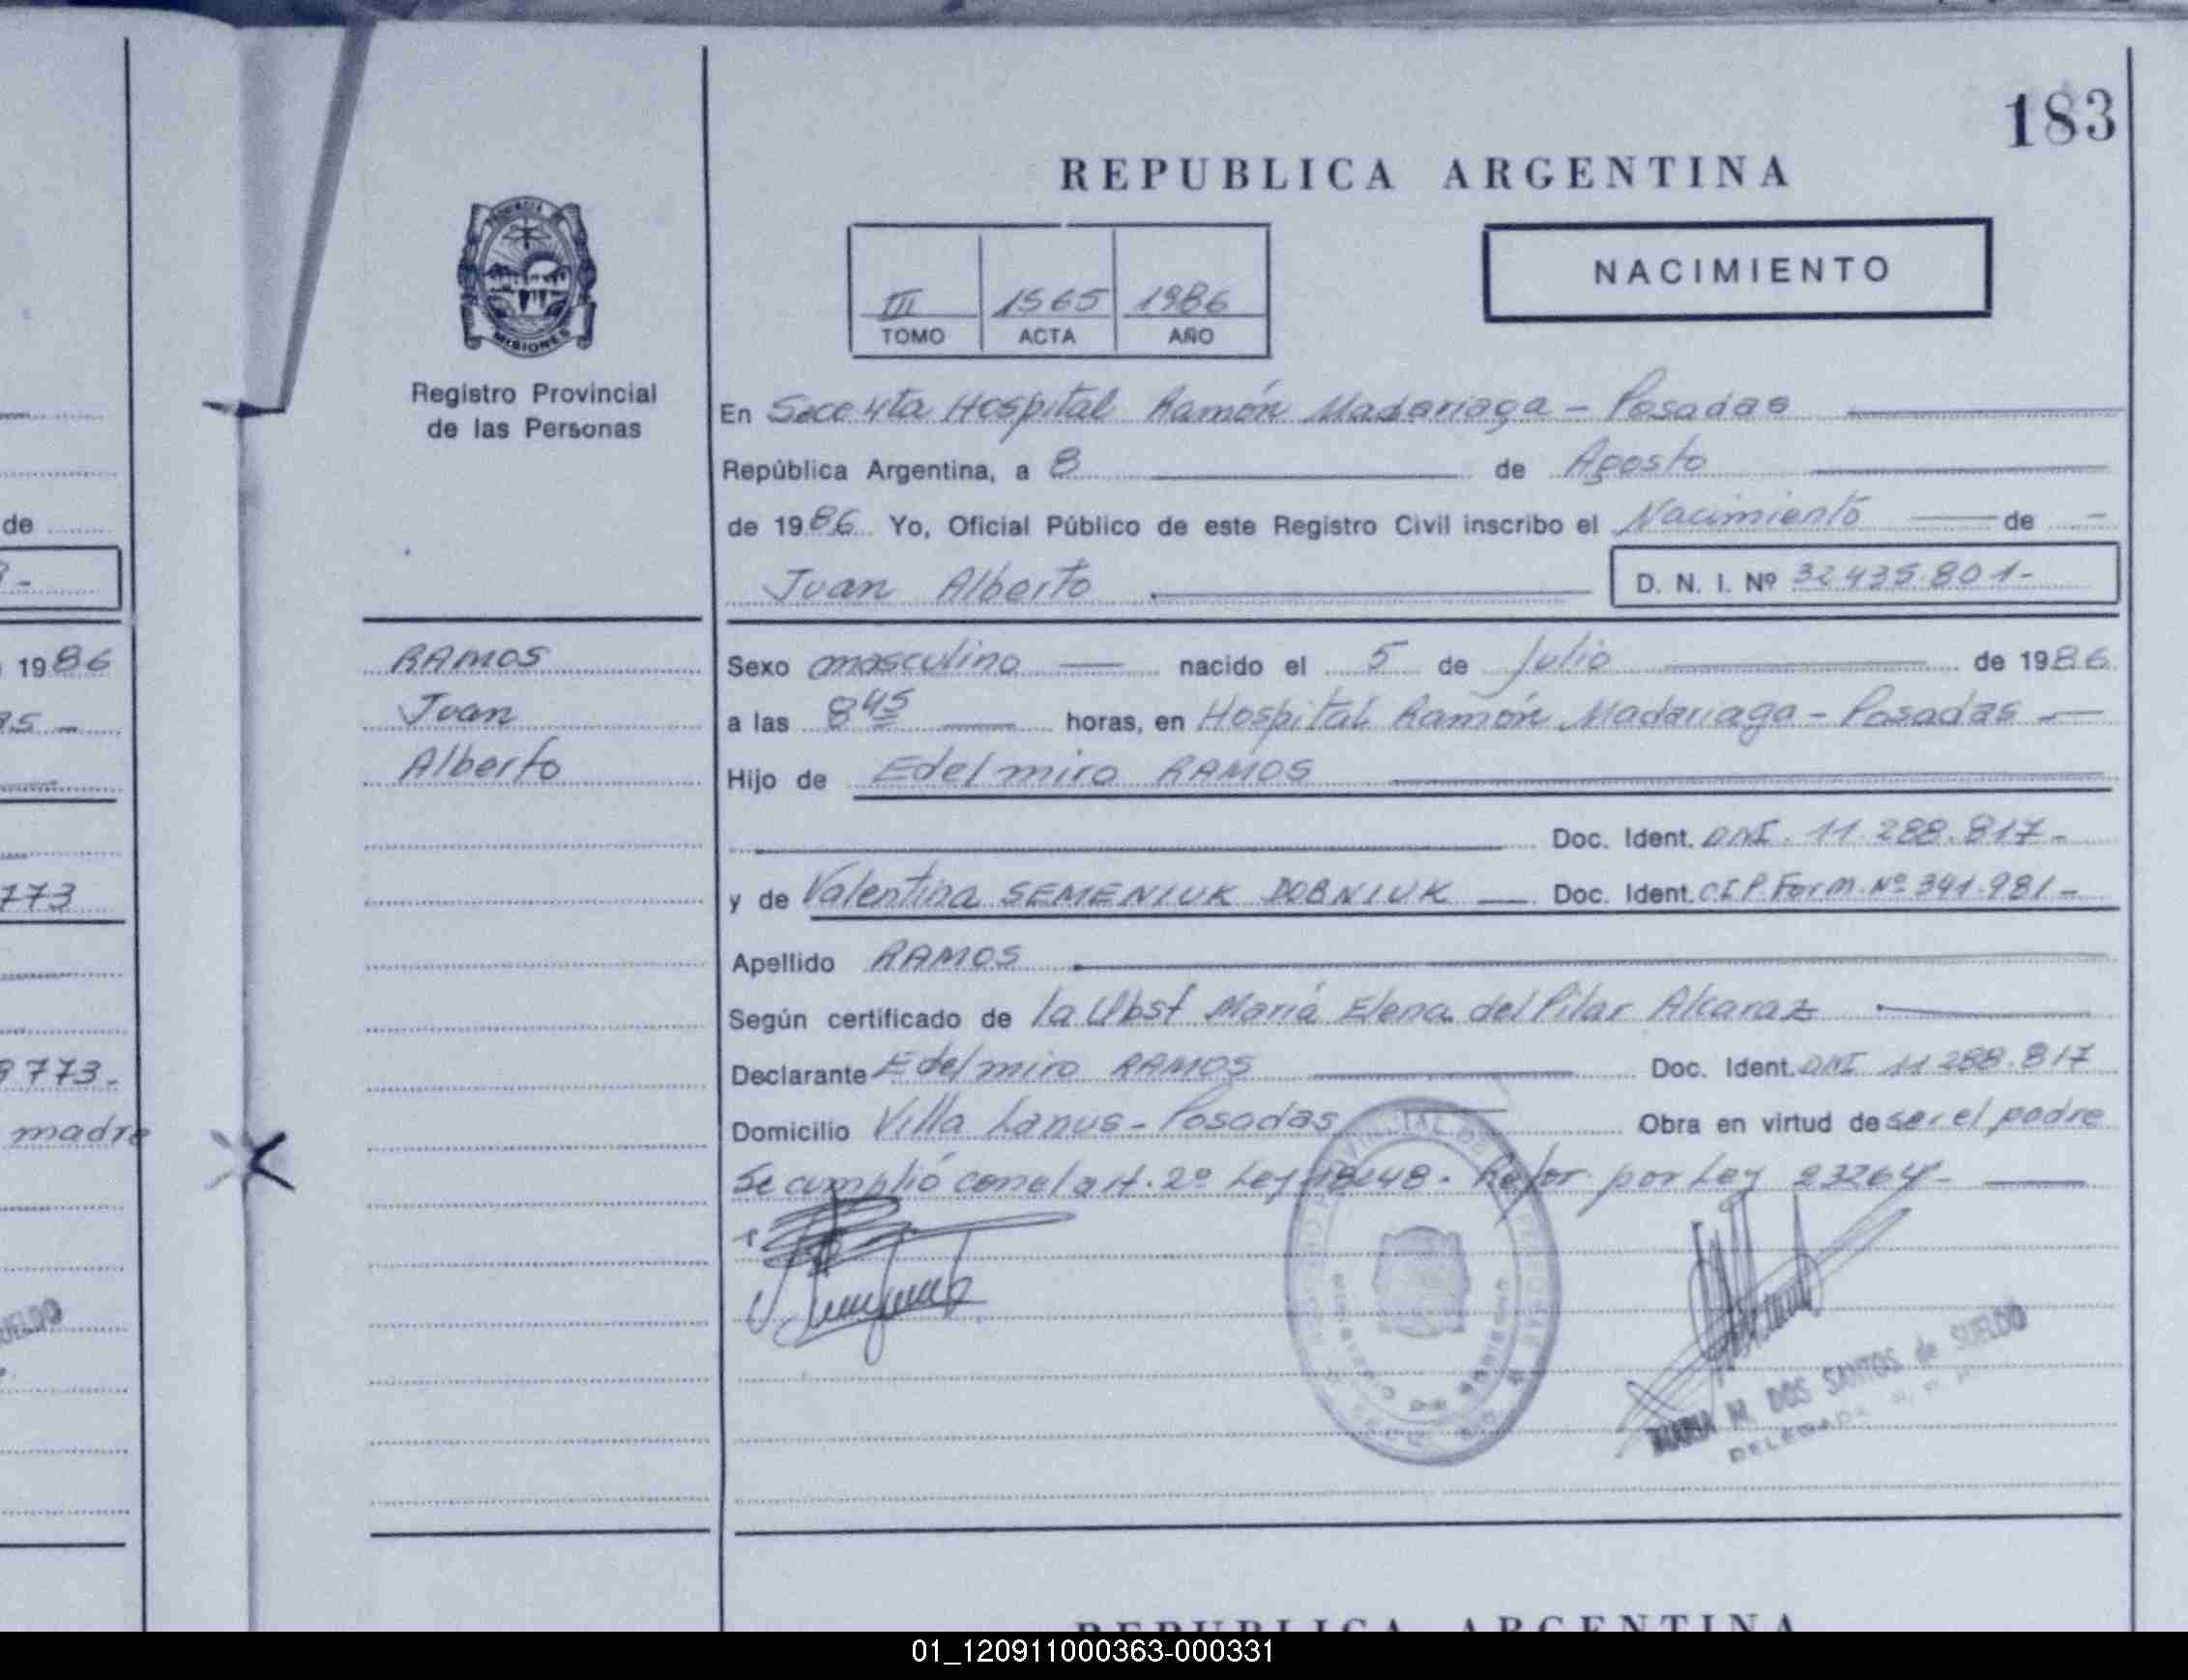 183
REPUBLICA ARGENTINA
NACIMIENTO
III 1565 1986
TOMO ACTA AÑO
PROVINCIA DE
MISIONES
Registro Provincial
de las Personas
En Secc 4ta Hospital Ramón Madariaga - Posadas
República Argentina, a 8 de Agosto
de 1986 Yo, Oficial Público de este Registro Civil inscribo el Nacimiento de -
Juan Alberto D. N. I. Nº 32.435.801-
RAMOS
Juan
Alberto
Sexo masculino nacido el 5 de Julio de 1986
a las 8 45 horas, en Hospital Ramón Madariaga - Posadas -
Hijo de Edelmiro RAMOS
Doc. Ident. DNI. 11.288.817-
y de Valentina SEMENIUK DOBNIUK Doc. Ident. C.I.P. Form. Nº 341.981-
Apellido RAMOS
Según certificado de la Obst María Elena del Pilar Alcaraz
Declarante Edelmiro RAMOS Doc. Ident. DNI 11.288.817
Domicilio Villa Lanus - Posadas Obra en virtud de ser el padre
Se cumplió con el art. 2º Ley 18248. Refor. por Ley 23264-
MARIA M. DOS SANTOS de SUELDO
DELEGADA
de
1986
95 -
773
9773-
madre
SUELDO
REPUBLICA ARGENTINA
01_120911000363-000331